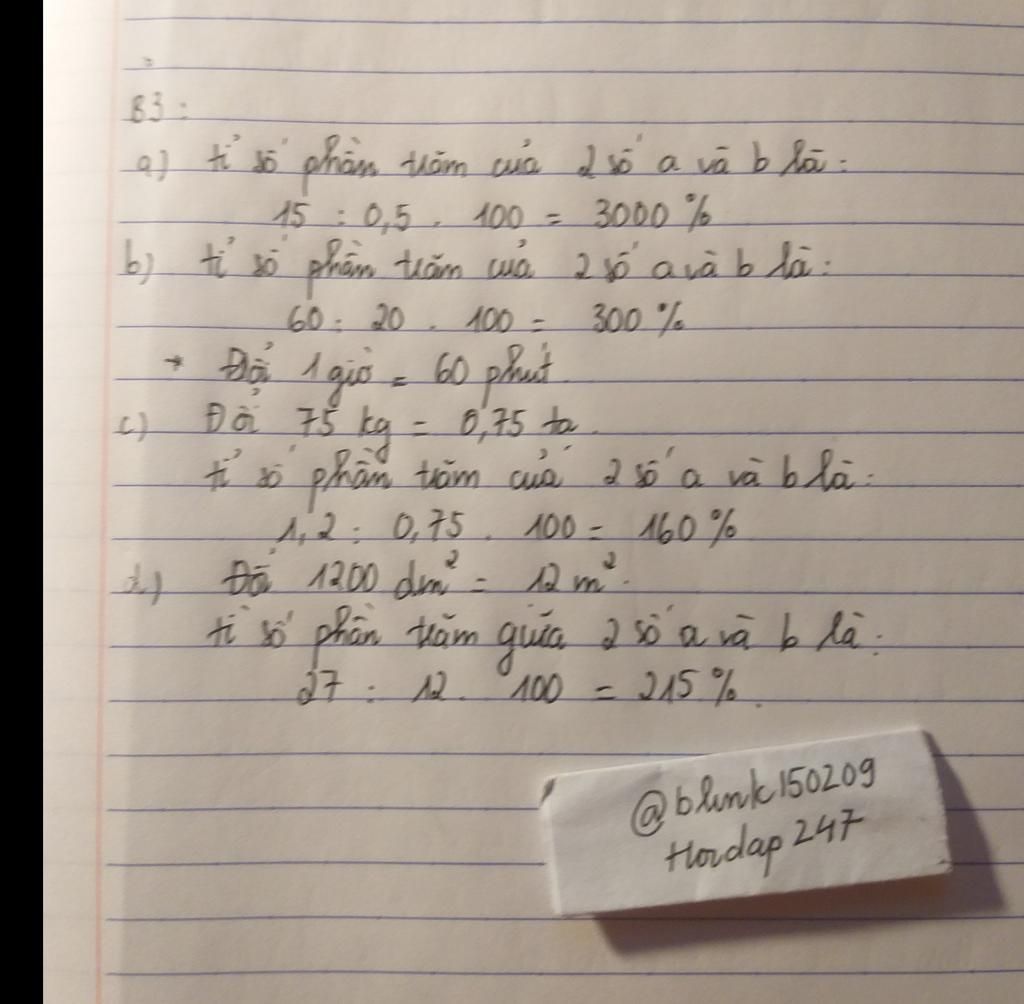 B3:
a) tỉ số phần trăm của 2 số a và b là:
15 : 0,5 . 100 = 3000 %
b) tỉ số phần trăm của 2 số a và b là:
60 : 20 . 100 = 300 %
* Đổi 1 giờ = 60 phút
c) Đổi 75 kg = 0,75 tạ.
tỉ số phần trăm của 2 số a và b là:
1,2 : 0,75 . 100 = 160 %
d) Đổi 1200 dm² = 12 m².
tỉ số phần trăm giữa 2 số a và b là:
27 : 12 . 100 = 215 %.
@blink150209
Hoidap 247